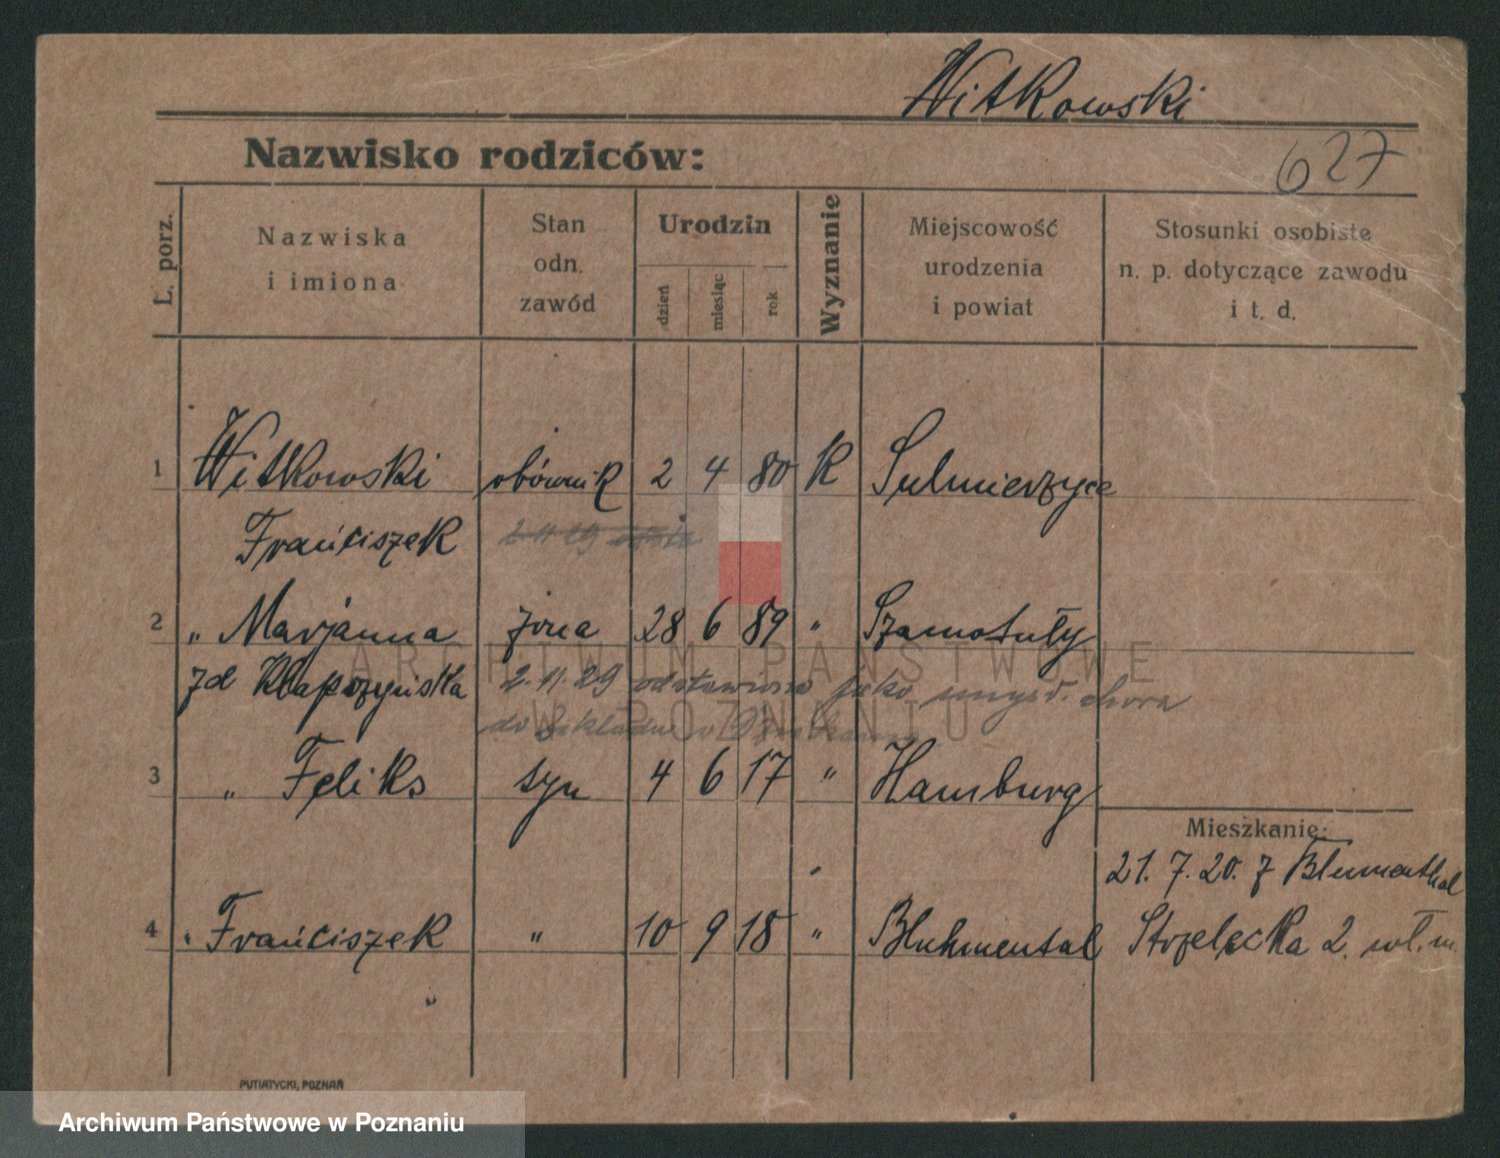 Witkowski
Nazwisko rodziców:
627
L. porz.
Nazwiska
i imiona
Stan
odn.
zawód
Urodzin
dzień
miesiąc
rok
Wyznanie
Miejscowość
urodzenia
i powiat
Stosunki osobiste
n. p. dotyczące zawodu
i t. d.
1 Witkowski obównik 2 4 80 K Sulmierzyce
Frańciszek
2.11.29
2 „ Marjanna żona 28 6 89 „ Szamotuły
zd Kłapczyńska 2.11.29 odstawiona jako umysł. chora
do Zakładu w
3 „ Feliks syn 4 6 17 „ Hamburg
Mieszkanie:
21. 7. 20. z Blumenthal
4 „ Frańciszek „ 10 9 18 „ Bluhmental Strzelecka 2. wł. m.
PUTIATYCKI, POZNAŃ
ARCHIWUM PAŃSTWOWE
W POZNANIU
Archiwum Państwowe w Poznaniu